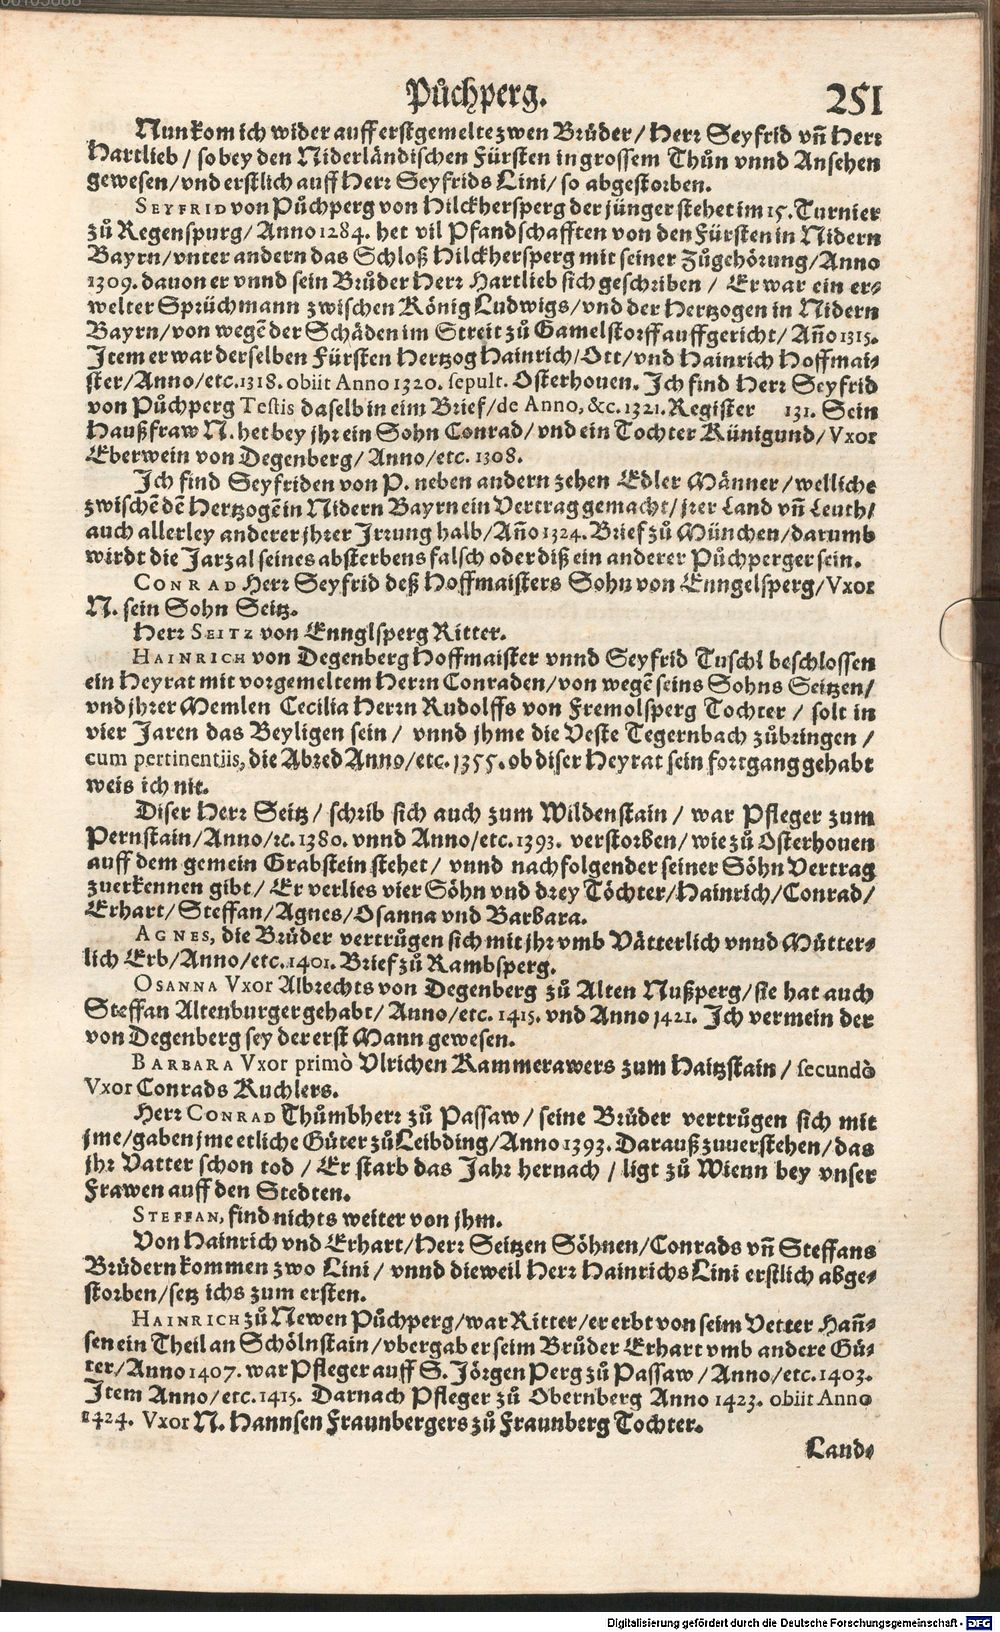 Půchperg. 251
Nun kom ich wider auff erstgemelte zwen Brůder / Herr Seyfrid vñ Herr
Hartlieb / so bey den Niderländischen Fürsten in grossem Thůn vnnd Ansehen
gewesen / vnd erstlich auff Herr Seyfrids Lini / so abgestorben.
SEYFRID von Půchperg von Hilckhersperg der jünger stehet im 15. Turnier
zů Regenspurg / Anno 1284. het vil Pfandschafften von den Fürsten in Nidern
Bayrn / vnter andern das Schloß Hilckhersperg mit seiner Zůgehörung / Anno
1309. dauon er vnnd sein Brůder Herr Hartlieb sich geschriben / Er war ein er-
welter Sprüchmann zwischen König Ludwigs / vnd der Hertzogen in Nidern
Bayrn / von wegẽ der Schäden im Streit zů Gamelstorff auffgericht / Año 1315.
Item er war derselben Fürsten Hertzog Hainrich / Ott / vnd Hainrich Hoffmai-
ster / Anno / etc. 1318. obiit Anno 1320. sepult. Osterhouen. Ich find Herr Seyfrid
von Půchperg Testis daselb in eim Brief / de Anno, &c. 1321. Register 131. Sein
Haußfraw N. het bey jhr ein Sohn Conrad / vnd ein Tochter Künigund / Vxor
Eberwein von Degenberg / Anno / etc. 1308.
Ich find Seyfriden von P. neben andern zehen Edler Männer / welliche
zwischẽ dẽ Hertzogẽ in Nidern Bayrn ein Vertrag gemacht / jrer Land vñ Leuth /
auch allerley anderer jhrer Irrung halb / Año 1324. Brief zů München / darumb
wirdt die Jarzal seines absterbens falsch oder diß ein anderer Půchperger sein.
CONRAD Herr Seyfrid deß Hoffmaisters Sohn von Enngelsperg / Vxor
N. sein Sohn Seitz.
Herr SEITZ von Ennglsperg Ritter.
HAINRICH von Degenberg Hoffmaister vnnd Seyfrid Tuschl beschlossen
ein Heyrat mit vorgemeltem Herrn Conraden / von wegẽ seins Sohns Seitzen /
vnd jhrer Memlen Cecilia Herrn Rudolffs von Fremolsperg Tochter / solt in
vier Jaren das Beyligen sein / vnnd jhme die Veste Tegernbach zůbringen /
cum pertinentiis, die Abred Anno / etc. 1355. ob diser Heyrat sein fortgang gehabt
weis ich nit.
Diser Herr Seitz / schrib sich auch zum Wildenstain / war Pfleger zum
Pernstain / Anno / ꝛc. 1380. vnnd Anno / etc. 1393. verstorben / wie zů Osterhouen
auff dem gemein Grabstein stehet / vnnd nachfolgender seiner Söhn Vertrag
zuerkennen gibt / Er verlies vier Söhn vnd drey Töchter / Hainrich / Conrad /
Erhart / Steffan / Agnes / Osanna vnd Barbara.
AGNES, die Brůder vertrůgen sich mit jhr vmb Vätterlich vnnd Mütter-
lich Erb / Anno / etc. 1401. Brief zů Rambsperg.
OSANNA Vxor Albrechts von Degenberg zů Alten Nußperg / sie hat auch
Steffan Altenburger gehabt / Anno / etc. 1415. vnd Anno 1421. Ich vermein der
von Degenberg sey der erst Mann gewesen.
BARBARA Vxor primò Vlrichen Kammerawers zum Haitzstain / secundò
Vxor Conrads Kuchlers.
Herr CONRAD Thůmbherr zů Passaw / seine Brůder vertrůgen sich mit
jme / gaben jme etliche Güter zů Leibding / Anno 1393. Darauß zuuerstehen / das
jhr Vatter schon tod / Er starb das Jahr hernach / ligt zů Wienn bey vnser
Frawen auff den Stedten.
STEFFAN, find nichts weiter von jhm.
Von Hainrich vnd Erhart / Herr Seitzen Söhnen / Conrads vñ Steffans
Brůdern kommen zwo Lini / vnnd dieweil Herr Hainrichs Lini erstlich abge-
storben / setz ichs zum ersten.
HAINRICH zů Newen Půchperg / war Ritter / er erbt von seim Vetter Hañ-
sen ein Theil an Schölnstain / vbergab er seim Brůder Erhart vmb andere Gü-
ter / Anno 1407. war Pfleger auff S. Jörgen Perg zů Passaw / Anno / etc. 1403.
Item Anno / etc. 1415. Darnach Pfleger zů Obernberg Anno 1423. obiit Anno
1424. Vxor N. Hannsen Fraunbergers zů Fraunberg Tochter.
Land-
Digitalisierung gefördert durch die Deutsche Forschungsgemeinschaft - DFG